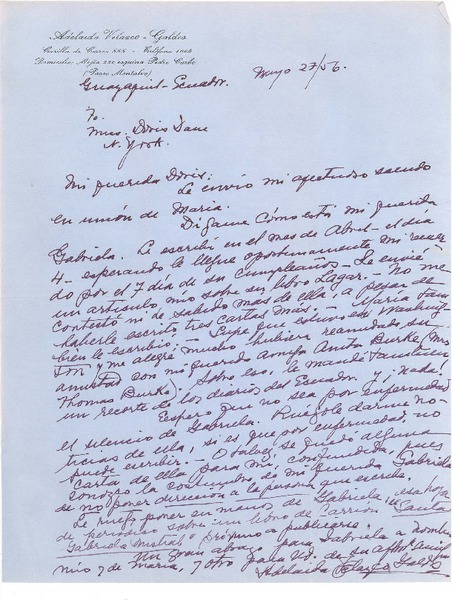 Adelaida Velasco - Galdós
Casilla de Correo 888 - Teléfono 1068
Domicilio: Mejía 220 esquina Pedro Carbo
(Paseo Montalvo)
Guayaquil - Ecuador.
Mayo 27/56.
To.
Mrs. Doris Dana
N. York.
Mi querida Doris:
Le envío mi afectuoso saludo
en unión de María.
Dígame cómo está mi querida
Gabriela. Le escribí en el mes de Abril - el día
4 - esperando le llegue oportunamente mi recuer
do por el 7 día de su cumpleaños - Le envié
un artículo mío sobre su libro Lagar. - No me
contestó ni he sabido mas de ella, a pesar de
haberle escrito tres cartas más. - María tam
bien le escribió. - Supe que estuvo en Washing
ton y me alegré mucho hubiera reanudado su
amistad con mi querida amiga Anita Burke (Mrs
Thomas Burke). Sobre eso, le mandé también
un recorte de los diarios del Ecuador. Y, ¡nada!
Espero que no sea por enfermedad
el silencio de Gabriela. Ruégole darme no-
ticias de ella, si es que por enfermedad no
puede escribir. - O talvez, se quedó alguna
carta de ella para mí, confundida, pues
conozco la costumbre de mi querida Gabriela
de no poner direccion a la persona que escribe.
Le ruego poner en manos de Gabriela, esa hoja
de periódico sobre un libro de Carrión "Santa
Gabriela Mistral" próximo a publicarse.
Un gran abrazo para Gabriela a nombre
mío y de María, y otro para Ud. de su afma. amiga
Adelaida Velasco Galdós